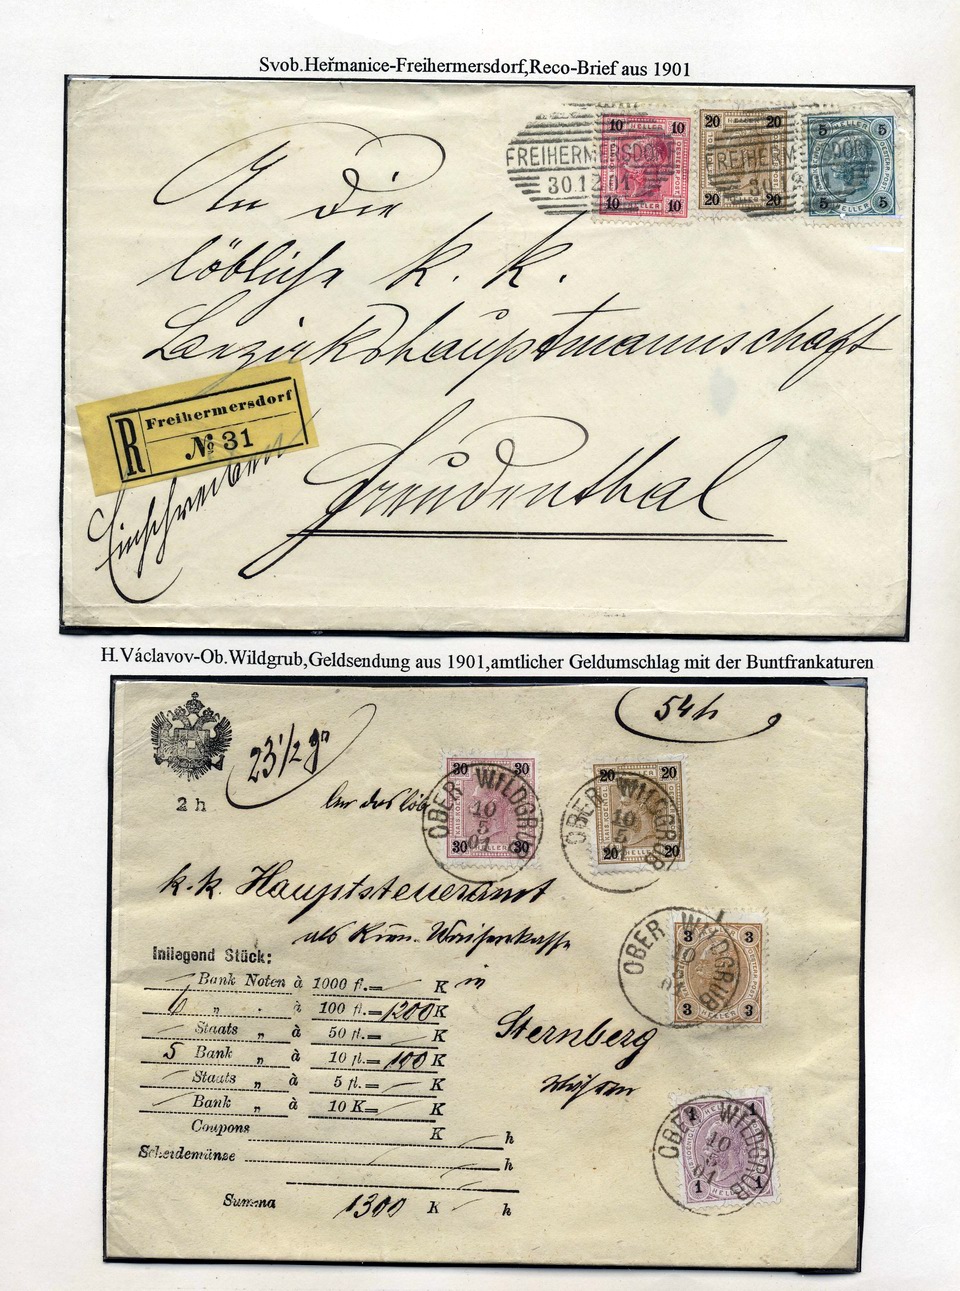 Svob.Heřmanice-Freihermersdorf,Reco-Brief aus 1901
10 10 HELLER 10 10
20 20 20 20
5 5 HELLER 5 5
FREIHERMERSDORF
30.12.01
FREIHERMERSDORF
An die
löbliche k. k.
Bezirkshauptmannschaft
Freudenthal
R Freihermersdorf
№ 31
Einschreiben
H.Václavov-Ob.Wildgrub,Geldsendung aus 1901,amtlicher Geldumschlag mit der Buntfrankaturen
54 h
23 1/2 gr
2 h
30 30 HELLER 30 30
20 20 HELLER 20 20
OBER WILDGRUB
10
5
01
OBER WILDGRUB
10
5
k.k. Hauptsteueramt
als Waisenkasse
in
Sternberg
Mähren
3 3 HELLER 3 3
OBER WILDGRUB
10
1 1 HELLER 1 1
OBER WILDGRUB
10
5
01
Inliegend Stück:
Bank Noten à 1000 fl.= K
6 „ „ à 100 fl.= 1200 K
Staats „ à 50 fl.= K
5 Bank „ à 10 fl.= 100 K
Staats „ à 5 fl.= K
Bank „ à 10 K= K
Coupons K h
Scheidemünze h
Summa 1300 K h